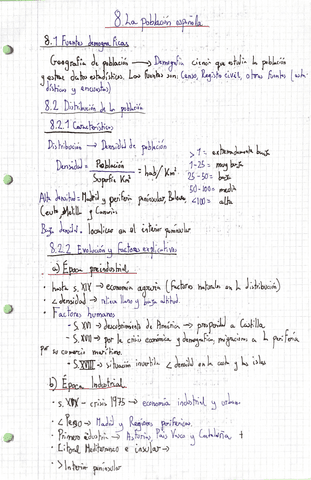 8. La población española
8.1 Fuentes demográficas
Geografía de población → Demografía ciencia que estudia la población
y extrae datos estadísticos. Las fuentes son: Censo, Registro civil, otras fuentes (esta-
dísticas y encuestas)
8.2 Distribución de la población
8.2.1 Características
Distribución → Densidad de población
Densidad = Población / Superfic Km² = hab/Km²
> 1 = extremadamente baja
1-25 = muy baja
25-50 = baja
50-100 = media
<100 = alta
Alta densidad = Madrid y periferia peninsular, Baleares
Ceuta, Melilla y Canarias
Baja densidad. localizar en el interior peninsular
8.2.2 Evolución y factores explicativos
a) Época preindustrial
· hasta s. XIX → economía agraria (factores naturales en la distribución)
· < densidad → relieve llano y baja altitud.
· Factores humanos
- S. XVI → descubrimiento de América → prosperidad a Castilla.
- S. XVII → por la crisis económica y demográfica, migraciones a la periferia
por su comercio marítimo.
- S. XVIII → situación invertida < densidad en la costa y las islas
b) Época Industrial
· s. XIX - crisis 1975 → economía industrial y urbana.
· < Peso → Madrid y Regiones periféricas.
· Primera industria → Asturias, País Vasco y Cataluña +
· Litoral Mediterraneo e insular →
· > Interior peninsular